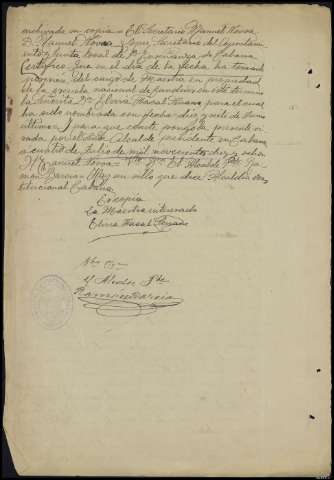 archivada su copia = El Secretario Manuel Novoa
D. Manuel Novoa y Secretario del Ayuntamiento
y Junta local de 1ª Enseñanza de Cabana
Certifico: Que en el día de la fecha ha tomado
posesión del cargo de Maestra en propiedad
de la escuela nacional de en este término
la Señorita Dª Elvira Nasal Senano para el cual
ha sido nombrada con fecha diez y siete de Junio
último; y para que conste pongo la presente vi-
sada por el Señor Alcalde presidente en Cabana
a cuatro de Julio de mil novecientos diez y ocho
Manuel Novoa = Vº Bº El Alcalde Pte Ra-
món Garcia = Hay un sello que dice Alcaldía Cons-
titucional Cabana
Es copia
La Maestra interesada
Elvira Nasal
Vto Bno
El Alcalde Pte
Ramón Garcia